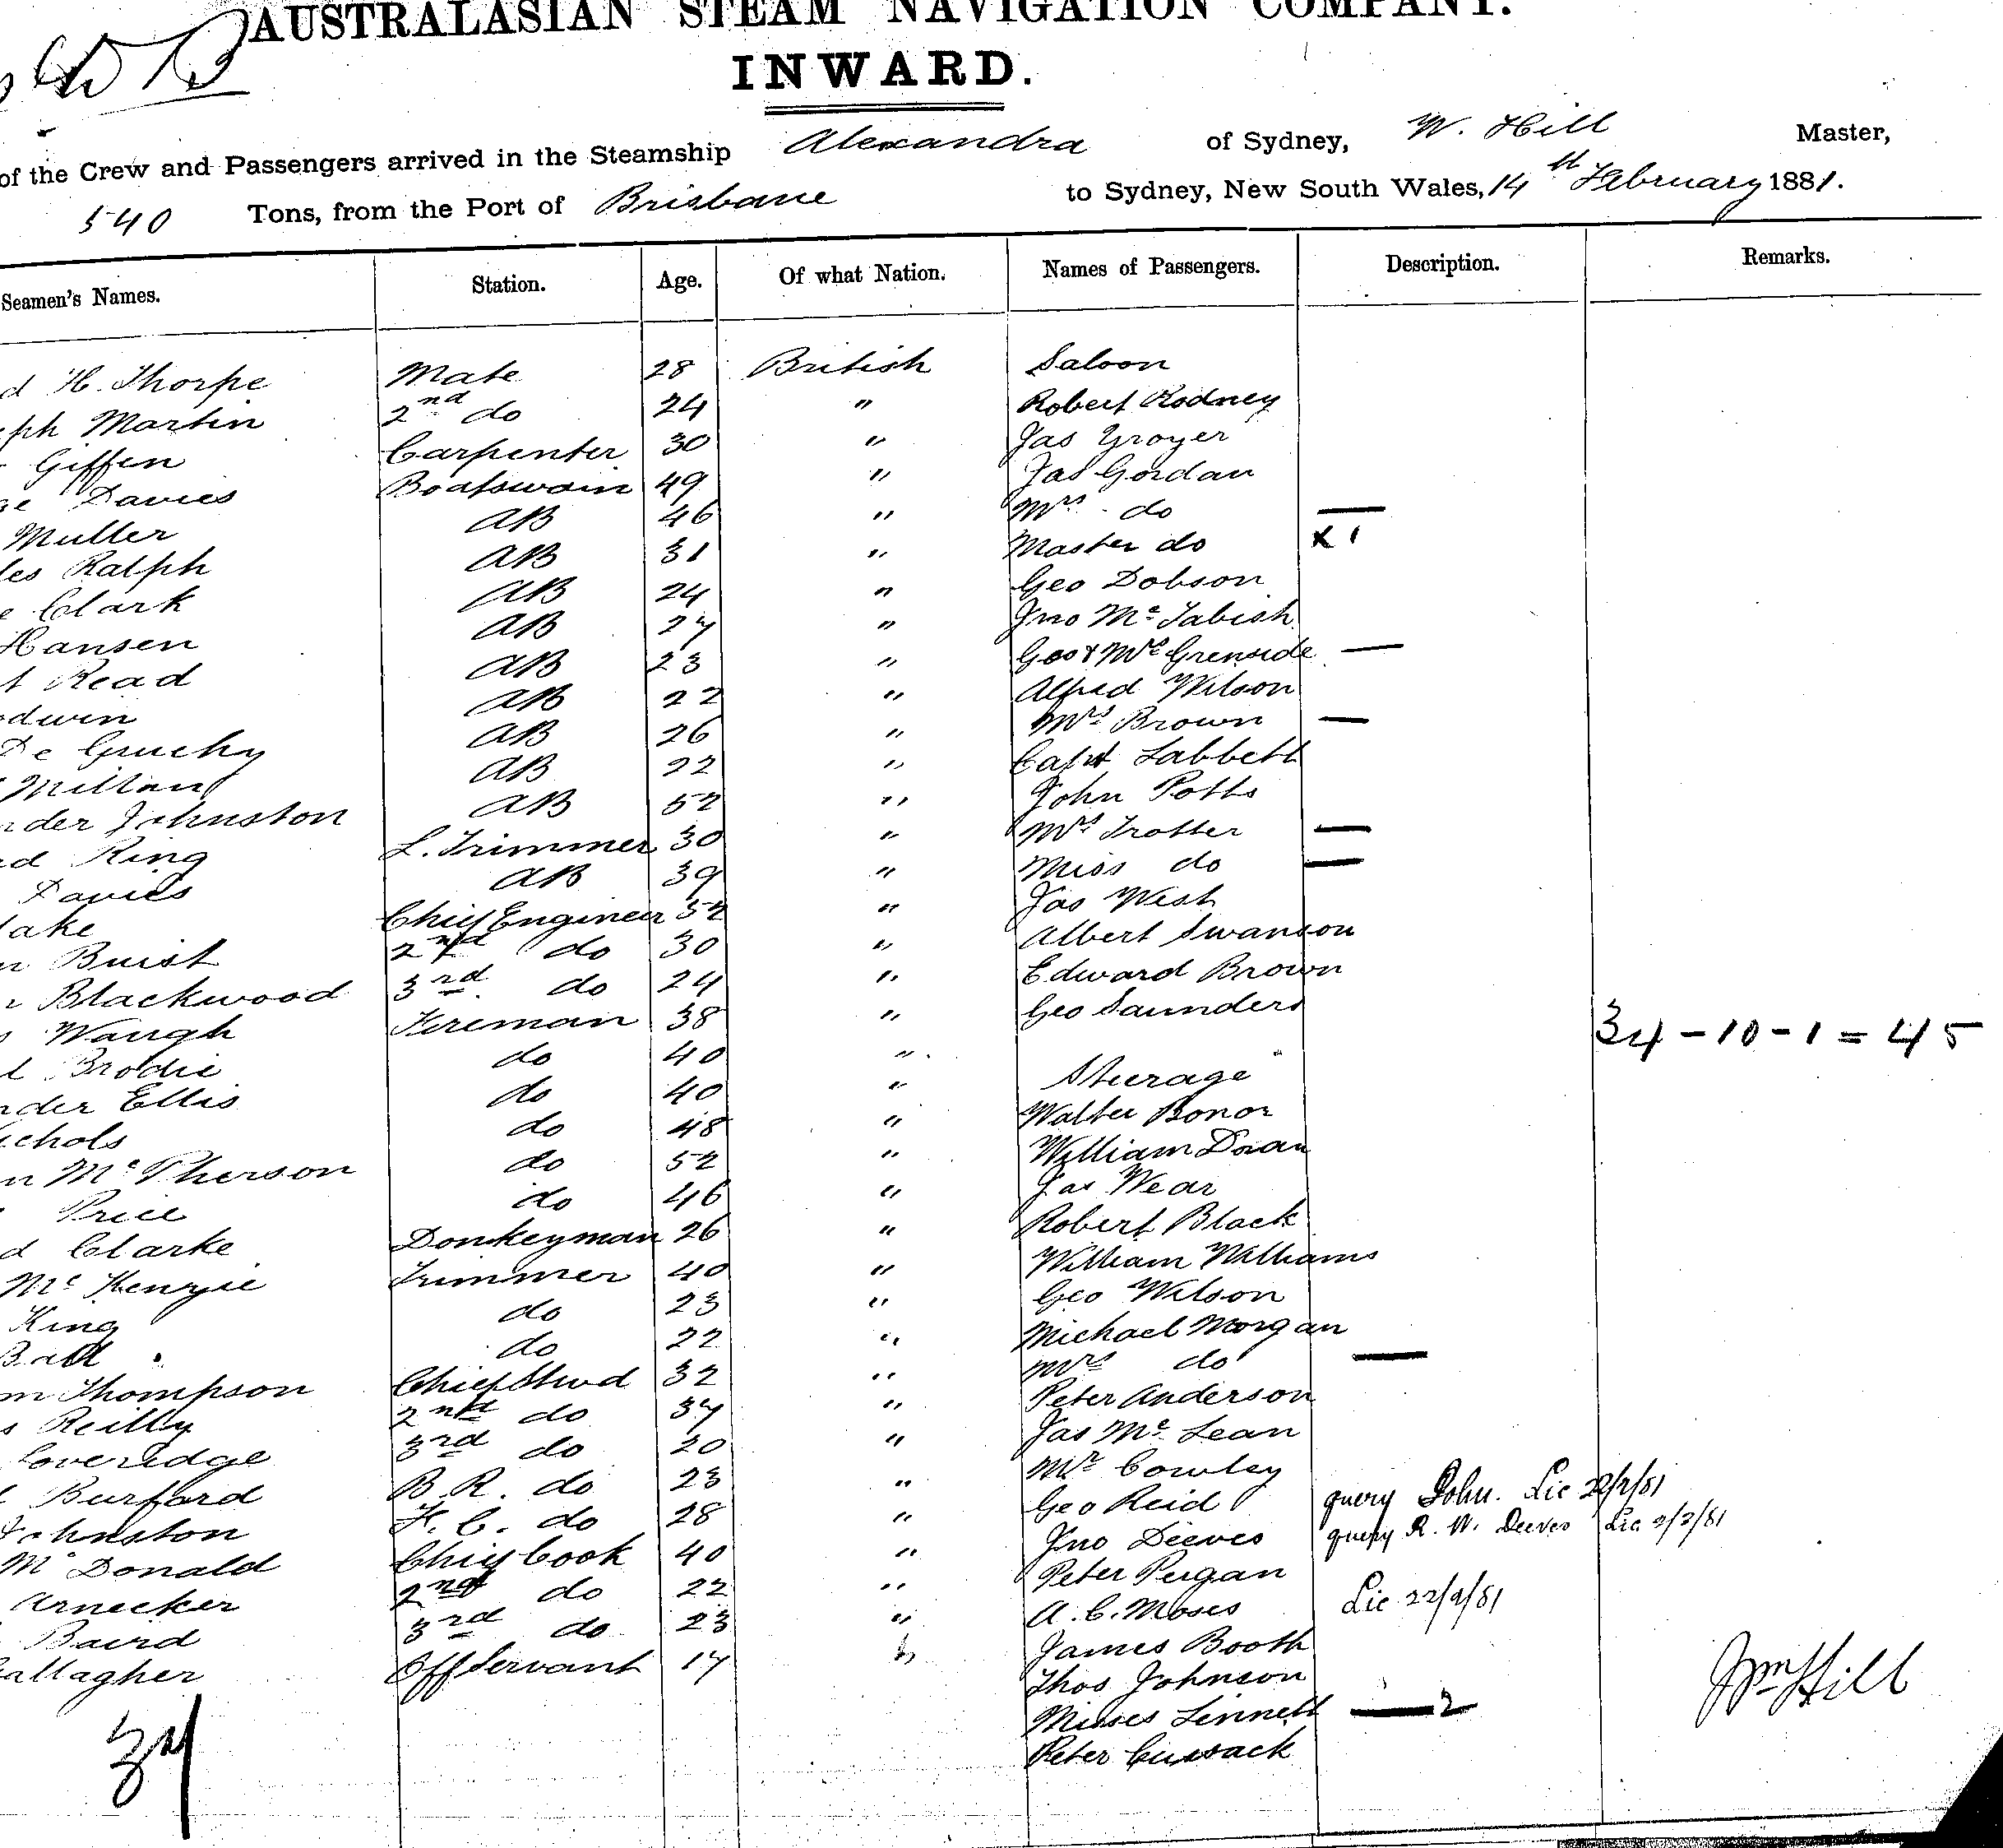 AUSTRALASIAN STEAM NAVIGATION COMPANY.
INWARD.
of the Crew and Passengers arrived in the Steamship Alexandra of Sydney, W. Hill Master,
540 Tons, from the Port of Brisbane to Sydney, New South Wales, 14th February 1881.
Seamen's Names. Station. Age. Of what Nation. Names of Passengers. Description. Remarks.
d H. Thorpe Mate 28 British Saloon
ph Martin 2nd do 24 " Robert Rodney
Giffen Carpenter 30 " Jas
Davies Boatswain 49 " Jas Gordan
Muller AB 46 " Mrs do —
les Ralph AB 31 " Master do x 1
e Clark AB 24 " Geo Dobson
Hansen AB 27 " Jno Mc Tabish
t Read AB 23 " Geo & Mrs Grenside —
dwin AB 22 " Alfred Wilson
De Gruchy AB 26 " Mrs Brown —
Millan AB 22 " Capt Labbett
nder Johnston AB 52 " John Potts
rd Ring L. Trimmer 30 " Mrs Trotter —
Davies AB 39 " Miss do —
lake Chief Engineer 52 " Jas West
n Buist 2nd do 30 " Albert Swanson
r Blackwood 3rd do 24 " Edward Brown
s Waugh Fireman 38 " Geo Saunders
l Brodie do 40 "
34 - 10 - 1 = 45
nder Ellis do 40 " Steerage
ichols do 48 " Walter Bonor
n Mc Pherson do 52 " William Doran
Price do 46 " Jas Wear
d Clarke Donkeyman 26 " Robert Black
Mc Kenzie Trimmer 40 " William Williams
King do 23 " Geo Wilson
Ball do 22 " Michael Morgan
m Thompson Chief Stwd 32 " Mrs do —
s Reilly 2nd do 37 " Peter Anderson
Loveridge 3rd do 20 " Jas Mc Lean
l Burford B. R. do 23 " Mr Cowley
Johnston F. C. do 28 " Geo Reid query John. Lic 22/2/81
Mc Donald Chief Cook 40 " Jno Deeves query R. W. Deeves Lic 2/2/81
Arnecker 2nd do 22 " Peter Pergan
Baird 3rd do 23 " A. C. Moses Lic 22/2/81
allagher Off Servant 17 " James Booth
Thos Johnson
Wm Hill
Misses Linnett — 2
Peter Cussack
34